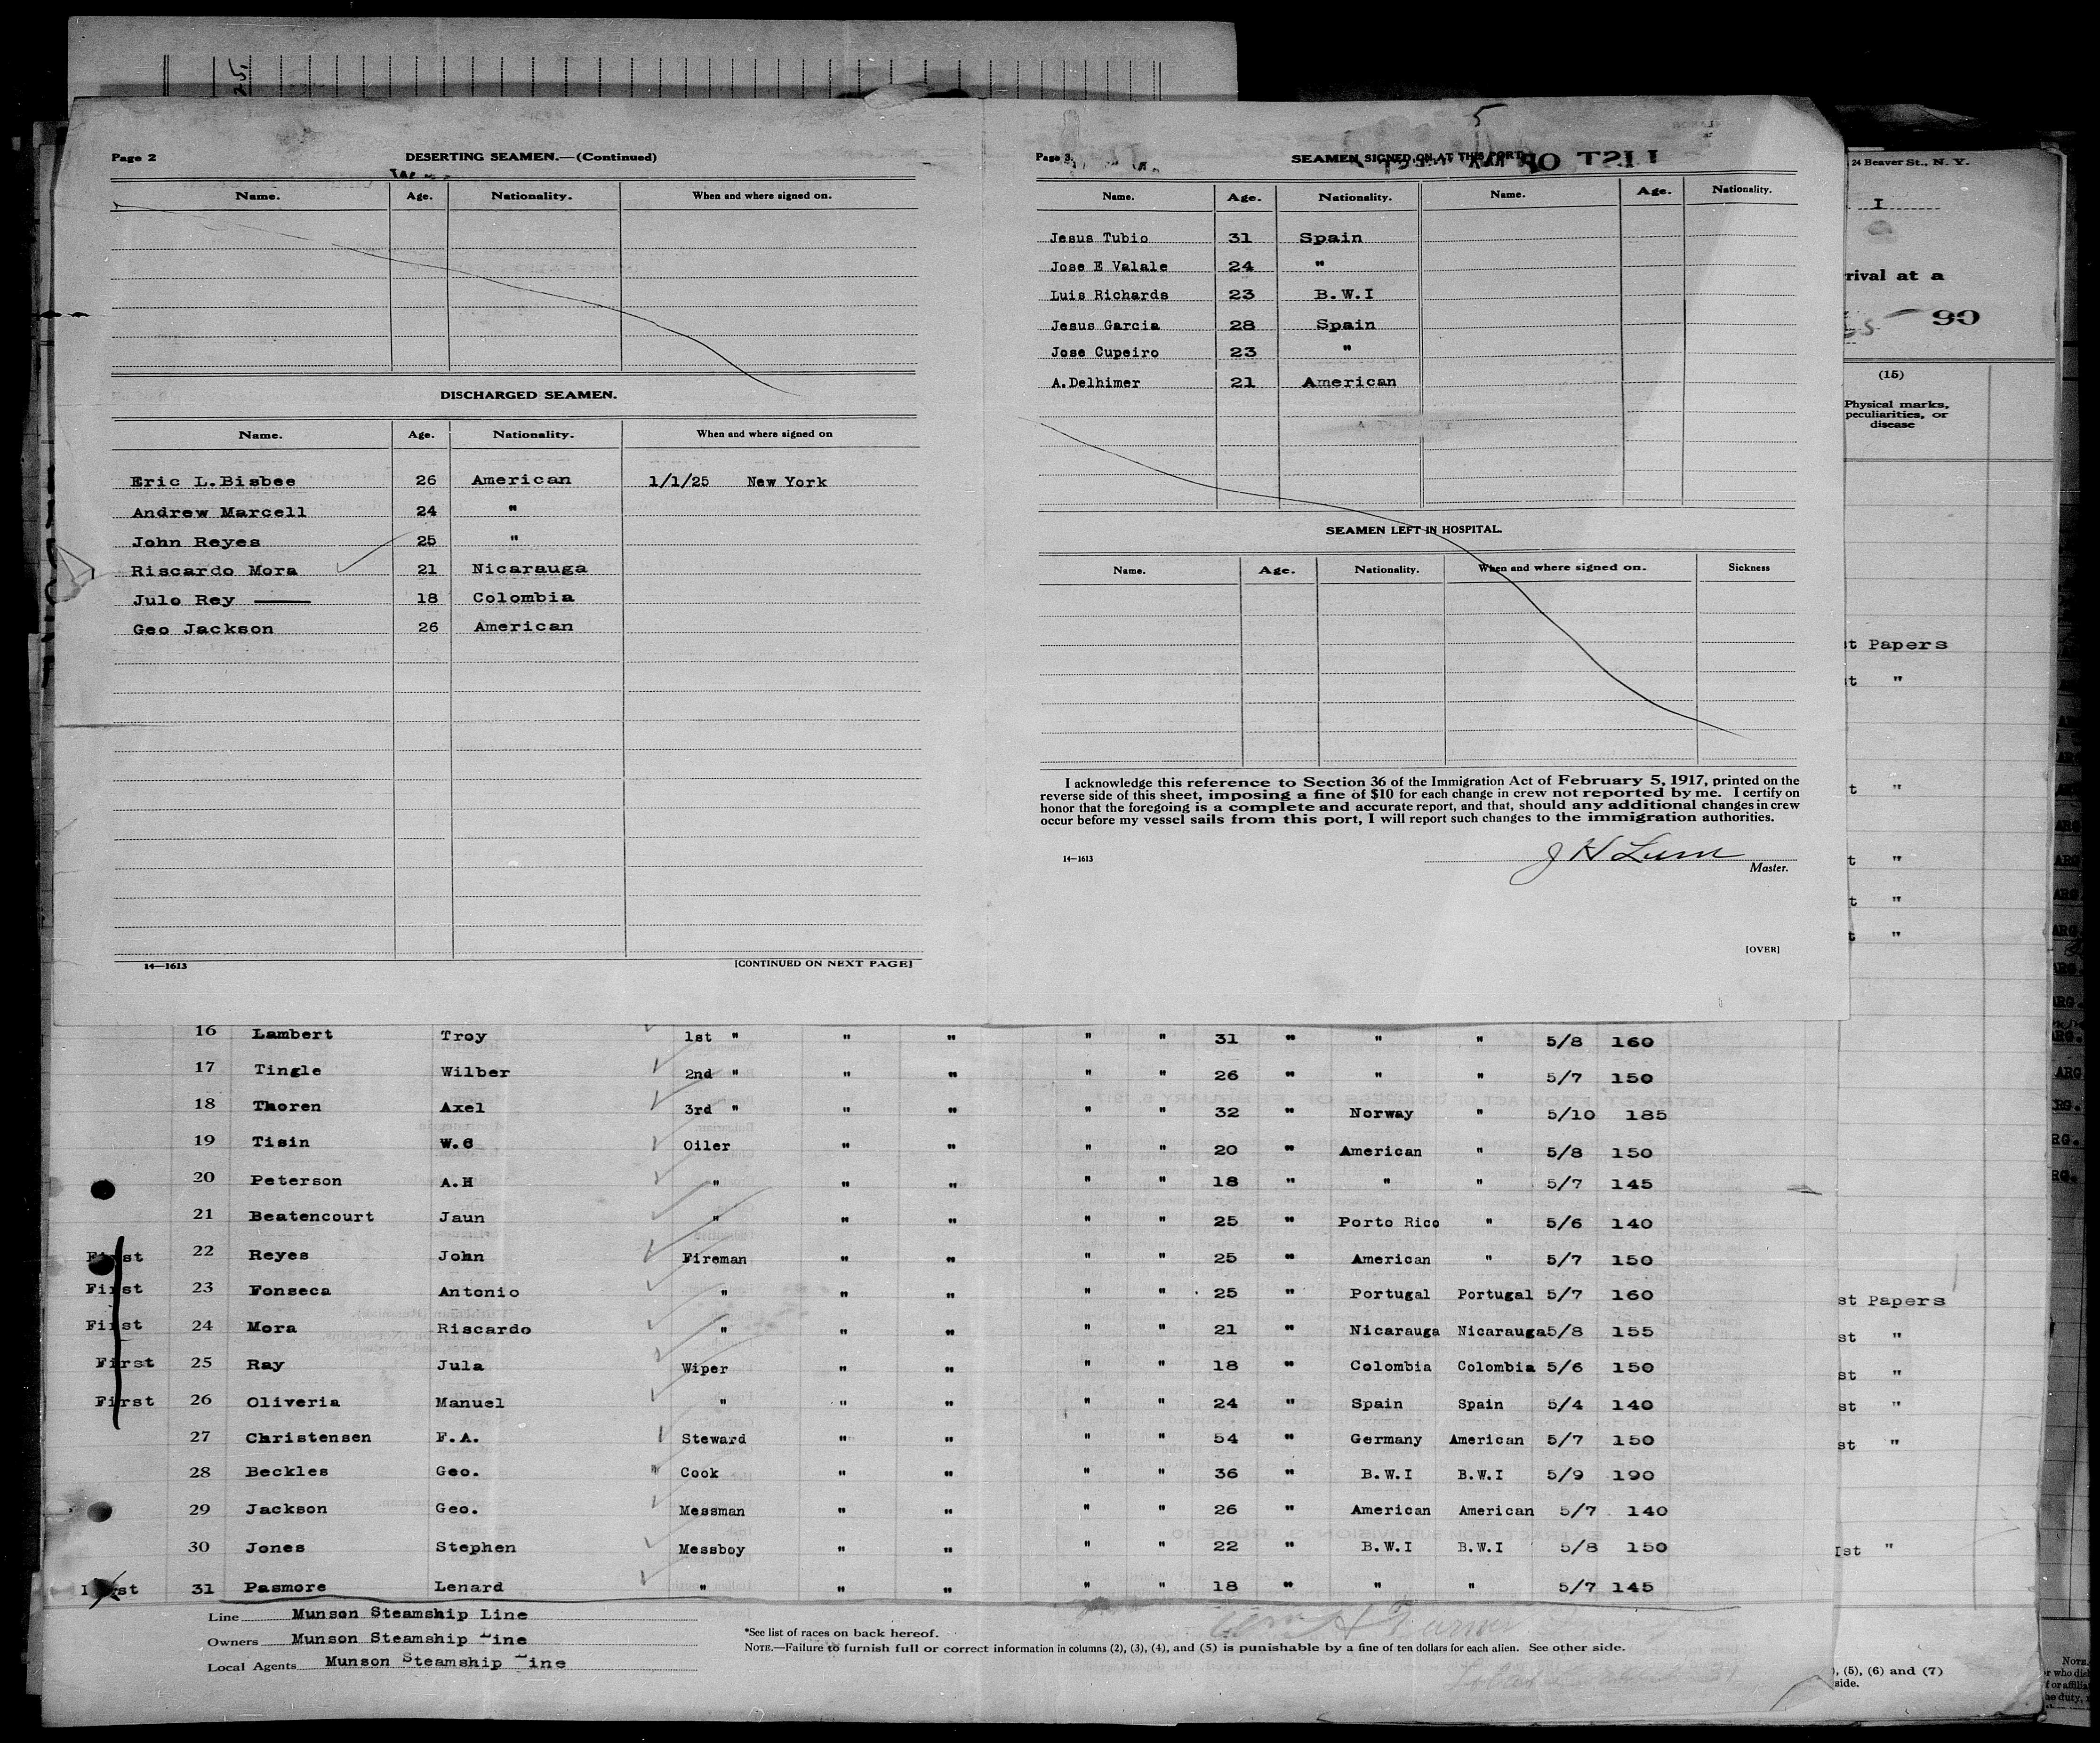 Page 2 DESERTING SEAMEN.—(Continued)
Name. Age. Nationality. When and where signed on.
DISCHARGED SEAMEN.
Name. Age. Nationality. When and where signed on
Eric L.Bisbee 26 American 1/1/25 New York
Andrew Marcell 24 "
John Reyes 25 "
Riscardo Mora 21 Nicarauga
Julo Rey 18 Colombia
Geo Jackson 26 American
14—1613 [CONTINUED ON NEXT PAGE]
5
Page 3 SEAMEN SIGNED ON AT THIS PORT
Name. Age. Nationality. Name. Age. Nationality.
Jesus Tubio 31 Spain
Jose E Valale 24 "
Luis Richards 23 B.W.I
Jesus Garcia 28 Spain
Jose Cupeiro 23 "
A.Delhimer 21 American
SEAMEN LEFT IN HOSPITAL.
Name. Age. Nationality. When and where signed on. Sickness
I acknowledge this reference to Section 36 of the Immigration Act of February 5, 1917, printed on the
reverse side of this sheet, imposing a fine of $10 for each change in crew not reported by me. I certify on
honor that the foregoing is a complete and accurate report, and that, should any additional changes in crew
occur before my vessel sails from this port, I will report such changes to the immigration authorities.
J H Lum
14—1613 Master.
[OVER]
24 Beaver St., N. Y.
I
rival at a
90
(15)
Physical marks,
peculiarities, or
disease
st Papers
t "
t "
t "
t "
t "
16 Lambert Troy 1st " " " " " 31 " " " 5/8 160
17 Tingle Wilber 2nd " " " " " 26 " " " 5/7 150
18 Thoren Axel 3rd " " " " " 32 " Norway " 5/10 185
19 Tisin W.C Oiler " " " " 20 " American " 5/8 150
20 Peterson A.H " " " " " 18 " " " 5/7 145
21 Beatencourt Jaun " " " " " 25 " Porto Rico " 5/6 140
First 22 Reyes John Fireman " " " " 25 " American " 5/7 150
First 23 Fonseca Antonio " " " " " 25 " Portugal Portugal 5/7 160 st Papers
First 24 Mora Riscardo " " " " " 21 " Nicarauga Nicarauga5/8 155 st "
First 25 Ray Jula Wiper " " " " 18 " Colombia Colombia 5/6 150 st "
First 26 Oliveria Manuel " " " " " 24 " Spain Spain 5/4 140 st "
27 Christensen F.A. Steward " " " " 54 " Germany American 5/7 150 st "
28 Beckles Geo. Cook " " " " 36 " B.W.I B.W.I 5/9 190
29 Jackson Geo. Messman " " " " 26 " American American 5/7 140
30 Jones Stephen Messboy " " " " 22 " B.W.I B.W.I 5/8 150 Ist "
31 Pasmore Lenard " " " " " 18 " " " 5/7 145
Line Munson Steamship Line
Owners Munson Steamship Line
Local Agents Munson Steamship Line
*See list of races on back hereof.
NOTE.—Failure to furnish full or correct information in columns (2), (3), (4), and (5) is punishable by a fine of ten dollars for each alien. See other side.
), (5), (6) and (7)
side.